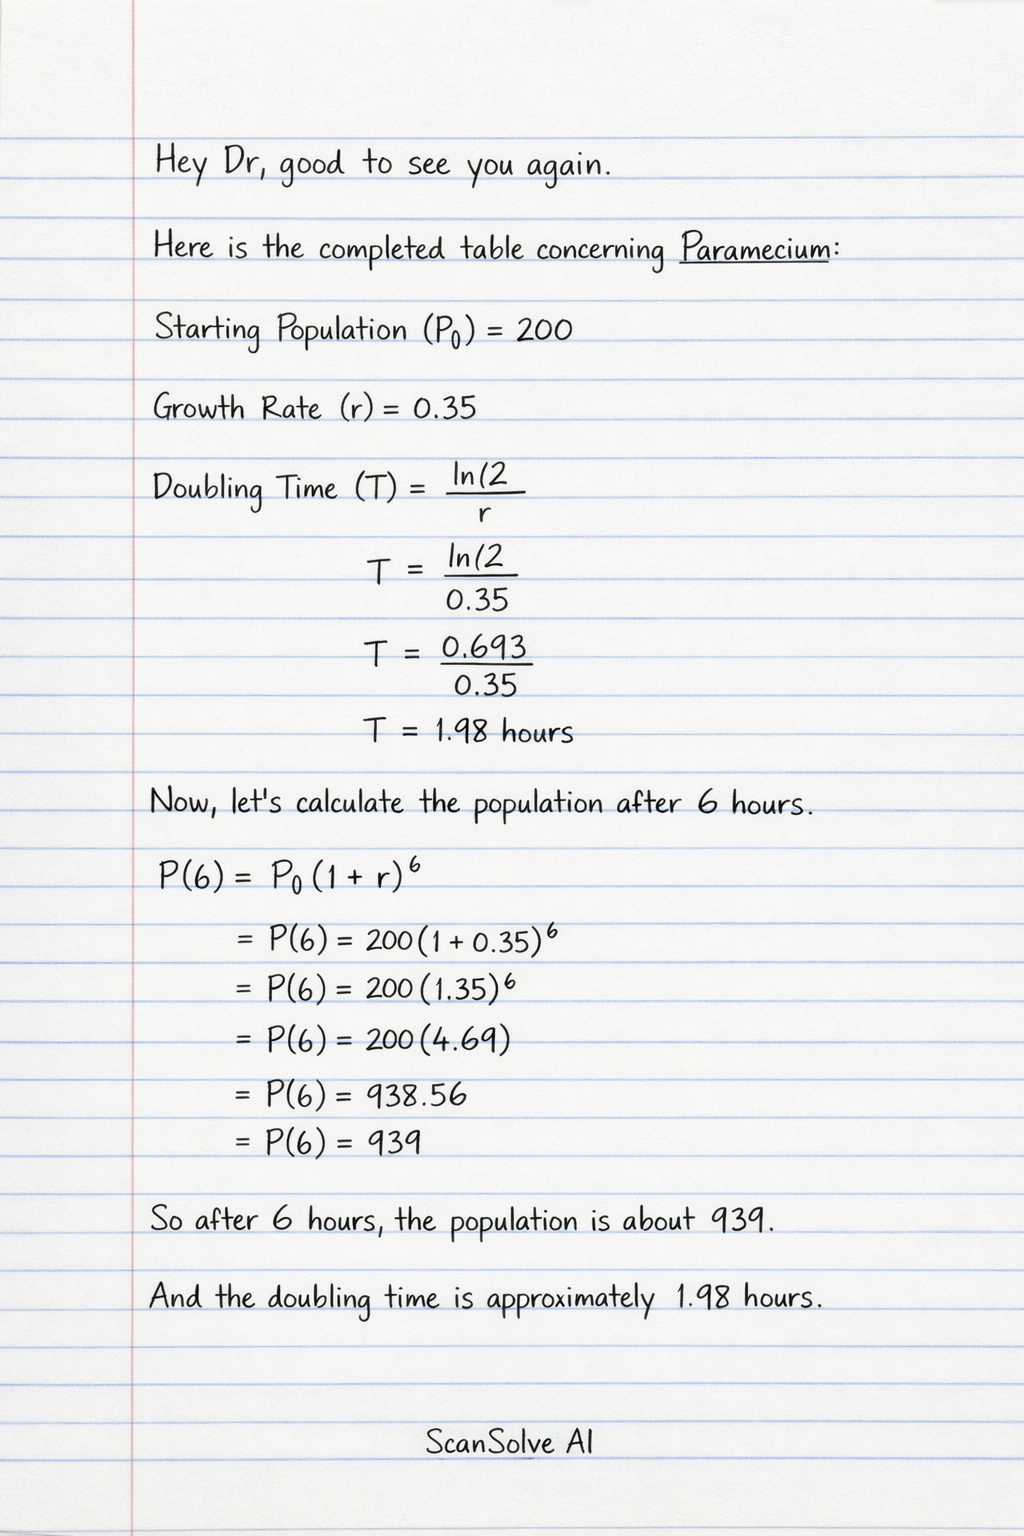 Hey Dr, good to see you again.
Here is the completed table concerning Paramecium:
Starting Population (P₀) = 200
Growth Rate (r) = 0.35
Doubling Time (T) = ln(2 / r
T = ln(2 / 0.35
T = 0.693 / 0.35
T = 1.98 hours
Now, let's calculate the population after 6 hours.
P(6) = P₀ (1 + r)⁶
= P(6) = 200(1 + 0.35)⁶
= P(6) = 200(1.35)⁶
= P(6) = 200(4.69)
= P(6) = 938.56
= P(6) = 939
So after 6 hours, the population is about 939.
And the doubling time is approximately 1.98 hours.
ScanSolve AI